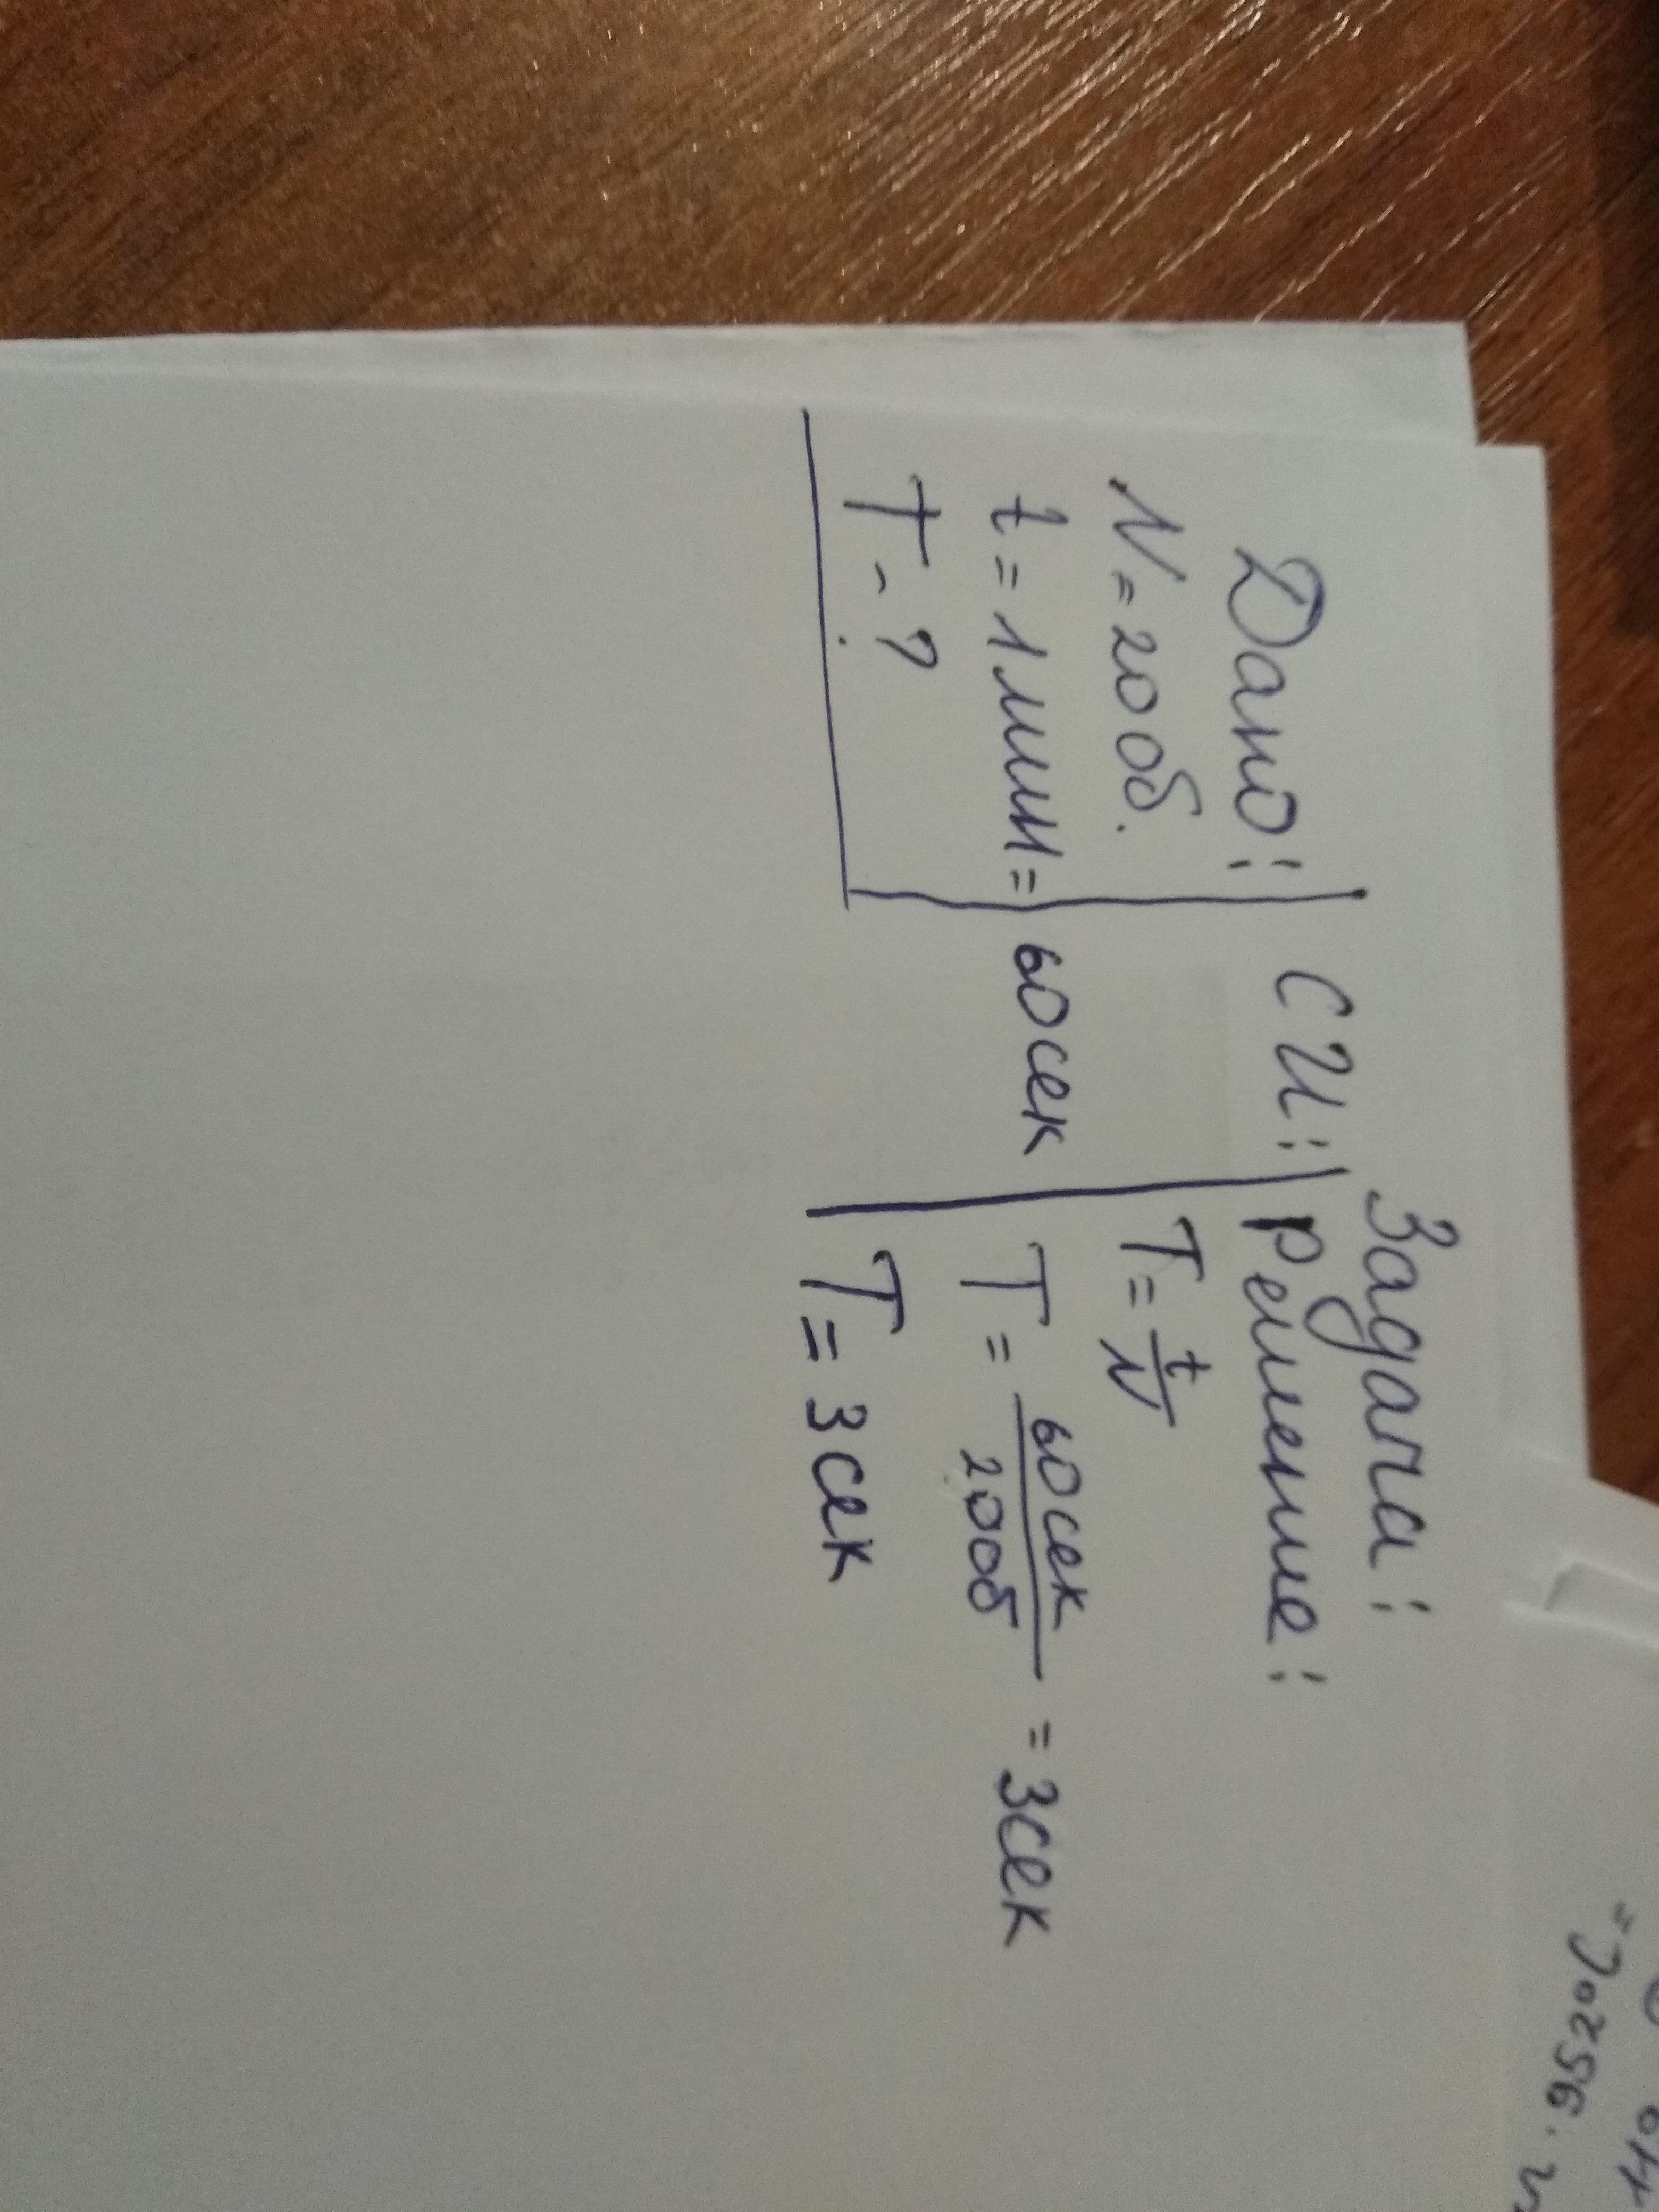 Задача:
Дано: СИ: Решение:
N = 20 об. T = t/N
t = 1 мин = 60 сек T = 60 сек / 20 об = 3 сек
T - ? T = 3 сек